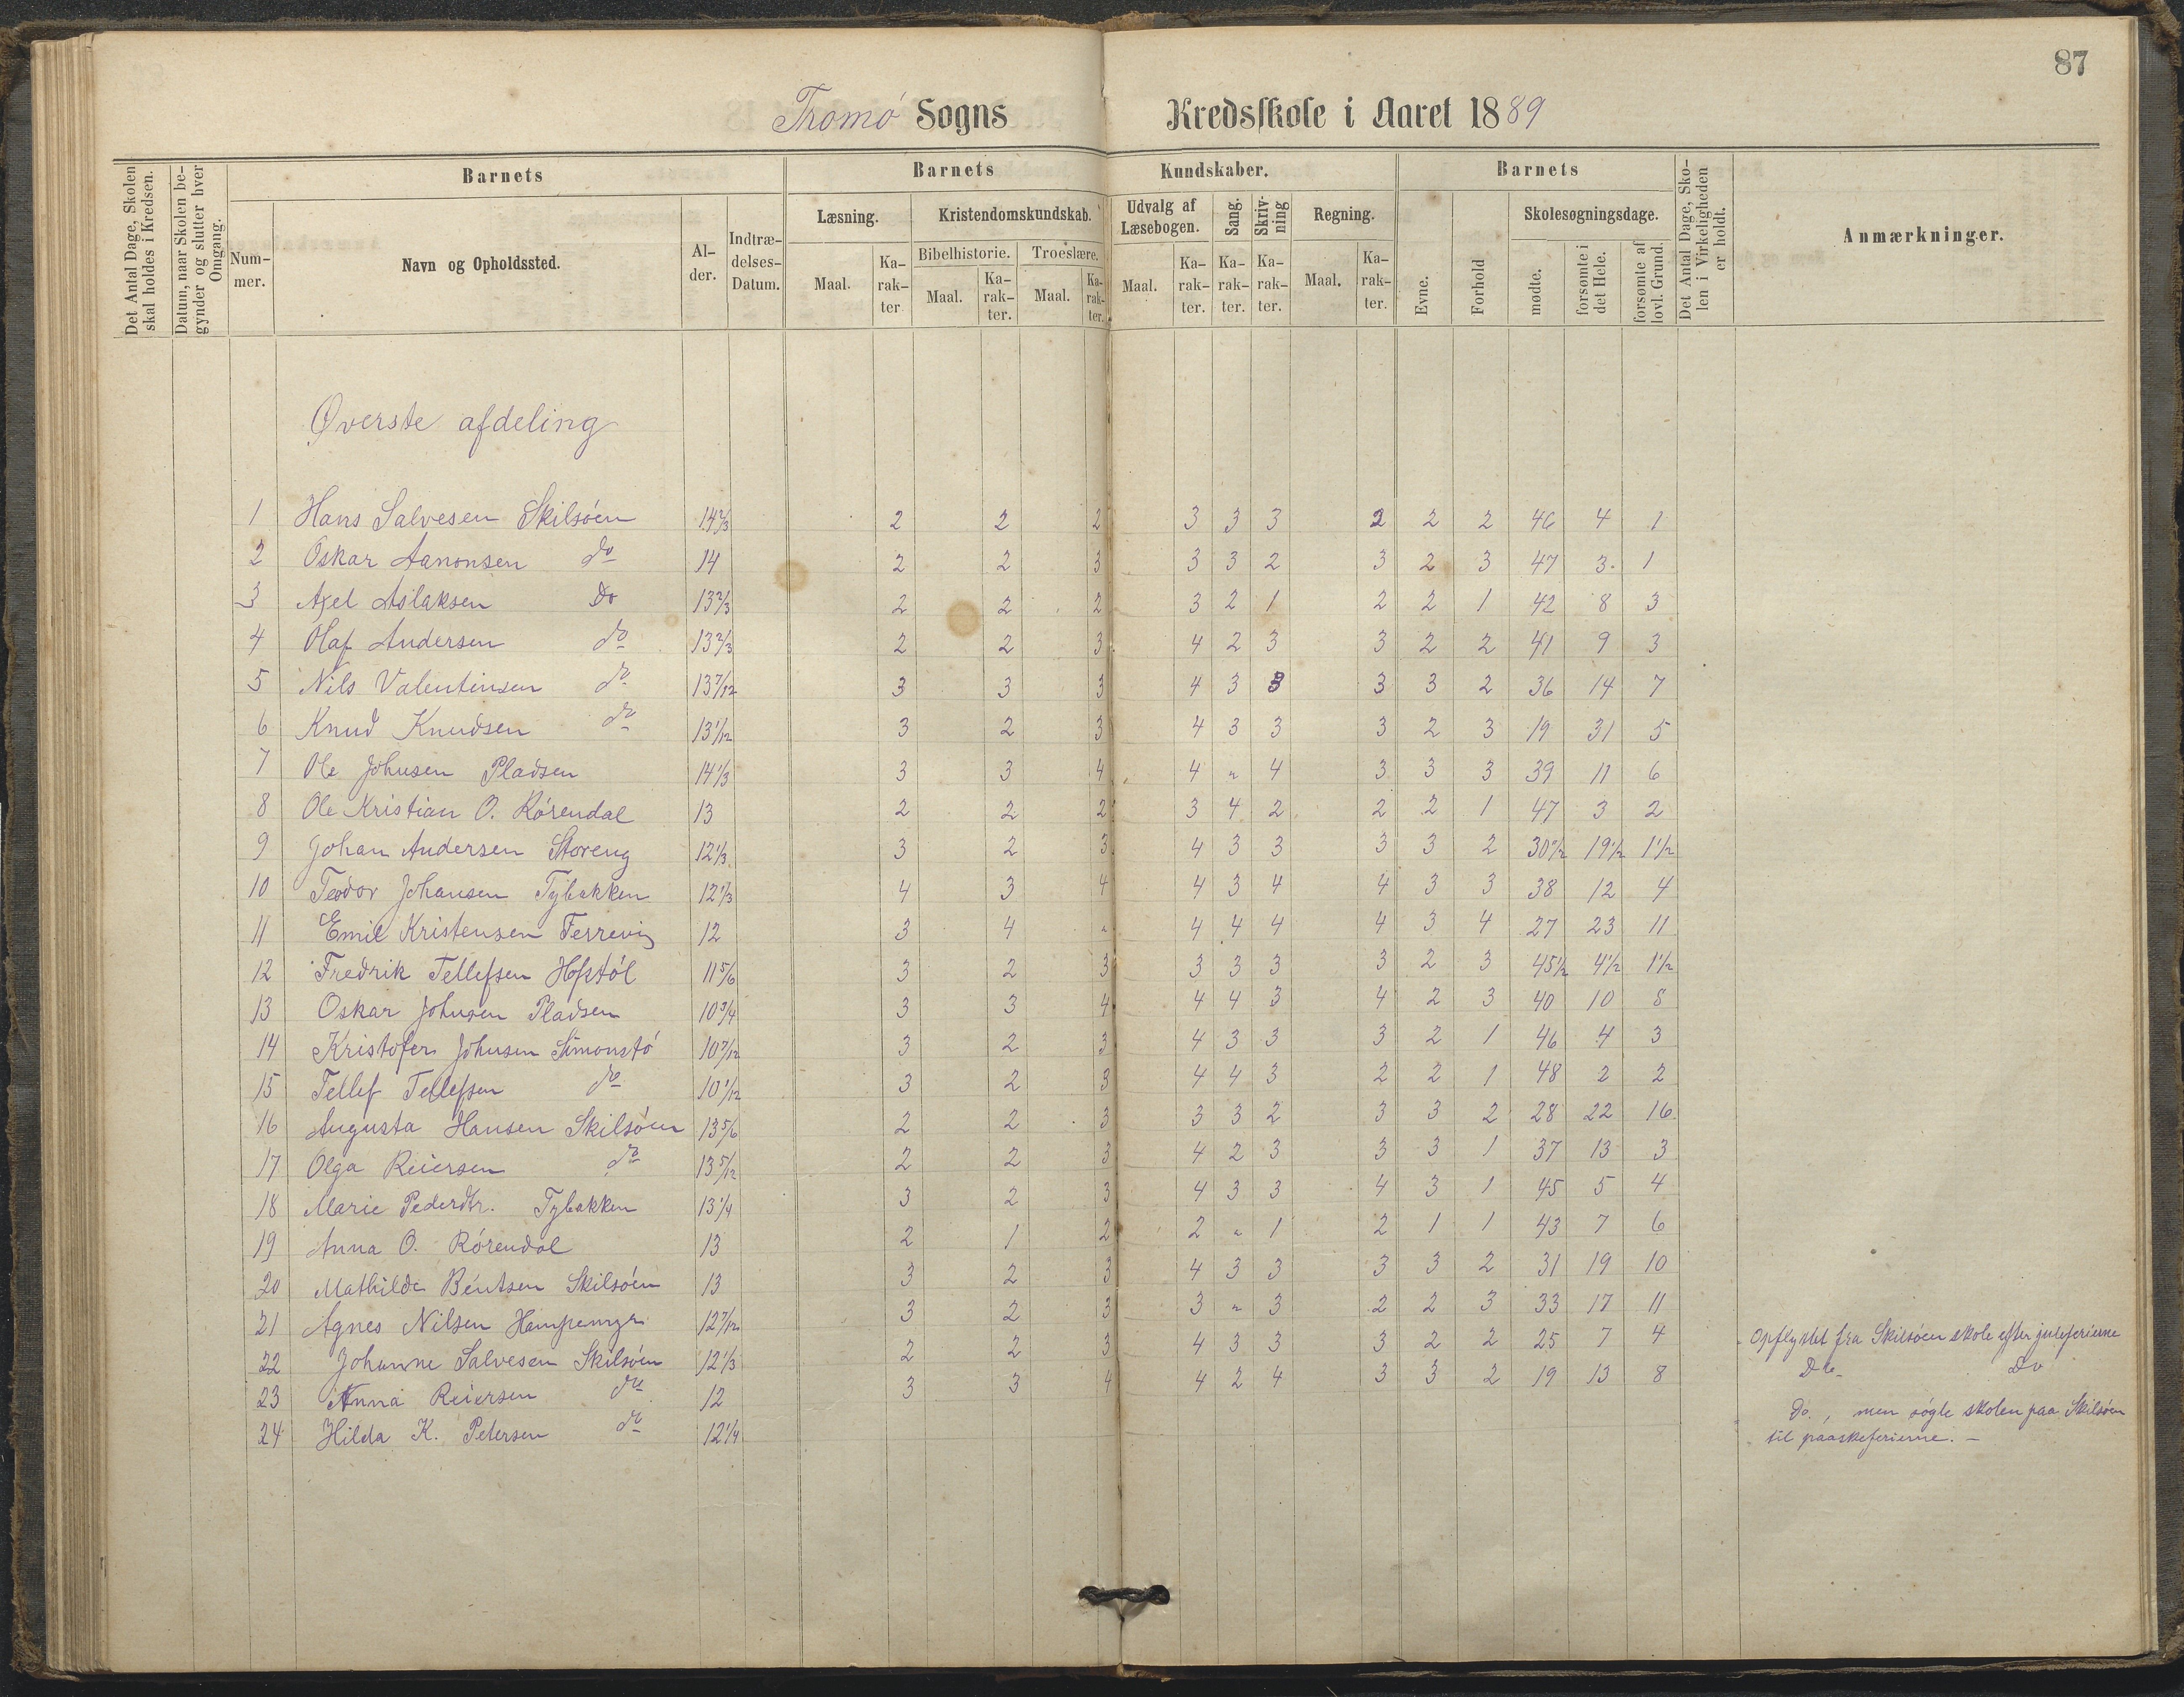 87
Tromø Sogns Kredsskole i Aaret 1889
Det Antal Dage, Skolen skal holdes i Kredsen.
Datum, naar Skolen begynder og slutter hver Omgang.
Barnets
Nummer.
Navn og Opholdssted.
Alder.
Indtrædelses-Datum.
Barnets Kundskaber.
Læsning.
Maal.
Karakter
Kristendomskundskab.
Bibelhistorie.
Maal.
Karakter.
Troeslære.
Maal.
Karakter.
Udvalg af Læsebogen.
Maal.
Karakter.
Sang.
Karakter.
Skrivning
Karakter.
Regning.
Maal.
Karakter.
Barnets
Evne.
Forhold
Skolesøgningsdage.
mødte.
forsømte i det Hele.
forsømte af lovl. Grund.
Det Antal Dage, Skolen i Virkeligheden er holdt.
Anmærkninger.
Øverste afdeling
1 Hans Salvesen Skilsøen 14 2/3 2 2 2 3 3 3 2 2 2 46 4 1
2 Oskar Aanonsen do 14 2 2 3 3 3 2 3 2 3 47 3. 1
3 Axel Aslaksen Do 13 2/3 2 2 2 3 2 1 2 2 1 42 8 3
4 Olaf Andersen do 13 2/3 2 2 3 4 2 3 3 2 2 41 9 3
5 Nils Valentinsen do 13 7/12 3 3 3 4 3 3 3 3 2 36 14 7
6 Knud Knudsen do 13 1/12 3 2 3 4 3 3 3 2 3 19 31 5
7 Ole Johnsen Pladsen 14 1/3 3 3 4 4 " 4 3 3 3 39 11 6
8 Ole Kristian O. Rørendal 13 2 2 2 3 4 2 2 2 1 47 3 2
9 Johan Andersen Storeng 12 1/3 3 2 3 4 3 3 3 3 2 30 1/2 19 1/2 1 1/2
10 Teodor Johansen Tybakken 12 1/3 4 3 4 4 3 4 4 3 3 38 12 4
11 Emil Kristensen 12 3 4 " 4 4 4 4 3 4 27 23 11
12 Fredrik Tellefsen Hofstøl 11 5/6 3 2 3 3 3 3 3 2 3 45 1/2 4 1/2 1 1/2
13 Oskar Johnsen Pladsen 10 3/4 3 3 4 4 4 3 4 2 3 40 10 8
14 Kristofer Johnsen Simonstø 10 7/12 3 2 3 4 3 3 3 2 1 46 4 3
15 Tellef Tellefsen do 10 1/12 3 2 3 4 4 3 2 2 1 48 2 2
16 Augusta Hansen Skilsøen 13 5/6 2 2 3 3 3 2 3 3 2 28 22 16
17 Olga Reiersen do 13 5/12 2 2 3 4 2 3 3 3 1 37 13 3
18 Marie Pedersdtr. Tybakken 13 1/4 3 2 3 4 3 3 4 3 1 45 5 4
19 Anna O. Rørendal 13 2 1 2 2 " 1 2 1 1 43 7 6
20 Mathilde Bentsen Skilsøen 13 3 2 3 4 3 3 3 3 2 31 19 10
21 Agnes Nilsen Hampemyr 12 7/12 3 2 3 3 " 3 2 2 3 33 17 11
22 Johanne Salvesen Skilsøen 12 1/3 2 2 3 4 3 3 3 2 2 25 7 4 Opflyttet fra Skilsøen skole efter juleferierne
23 Anna Reiersen do 12 3 3 4 4 2 4 3 3 2 19 13 8 Do Do
24 Hilda K. Petersen do 12 1/4 Do., men søgte skolen paa Skilsøen
til paaskeferierne. –